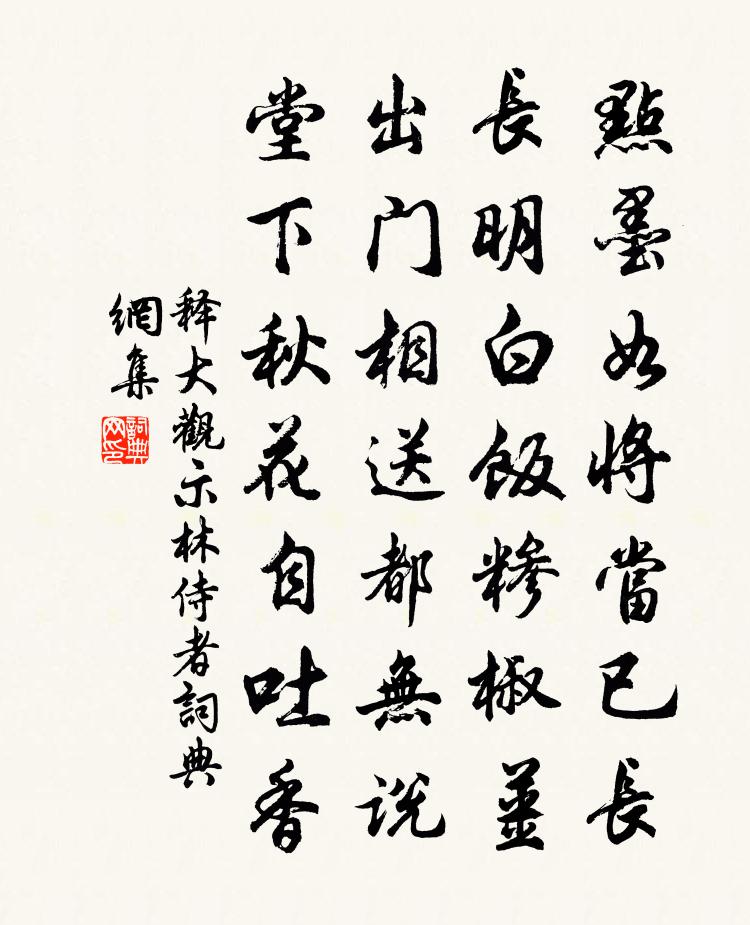 點墨如將當己長
長明白飯糝椒薑
出门相送都無说
堂下秋花自吐香
释大觀示林侍者詞典
網集
詞典
网印